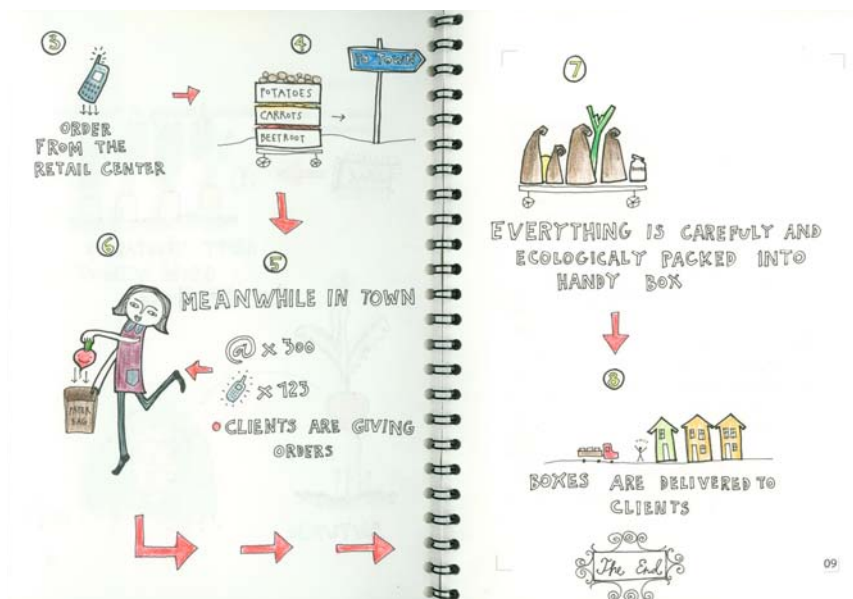 3
ORDER
FROM THE
RETAIL CENTER
4
POTATOES
CARROTS
BEETROOT
TO TOWN
5
MEANWHILE IN TOWN
@ x 300
x 123
CLIENTS ARE GIVING
ORDERS
6
PAPER
BAG
7
EVERYTHING IS CAREFULY AND
ECOLOGICALY PACKED INTO
HANDY BOX
8
BOXES ARE DELIVERED TO
CLIENTS
The End
09